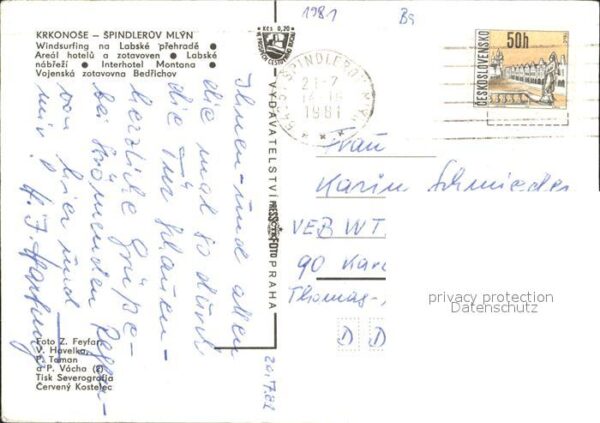 KRKONOŠE – ŠPINDLERŮV MLÝN
Windsurfing na Labské přehradě ●
Areál hotelů a zotavoven ● Labské
nábřeží ● Interhotel Montana ●
Vojenská zotavovna Bedřichov
Ihnen und allen
die mal so durch
die Tür schauen
herzliche Grüße
bei strömenden Regen
von hier und
mir.
Foto Z. Feyfar
J. Havelka,
Toman
a P. Vácha (2)
Tisk Severografia
Červený Kostelec
VYDAVATELSTVÍ PRESSFOTO PRAHA
Kčs 0,20
20.7.81
1981
ŠPINDLERŮV MLÝN
21.-7.
1981
50h
ČESKOSLOVENSKO
Frau
Karin Schmieder
VEB WT
90 Karl
Thomas-
D D
privacy protection
Datenschutz